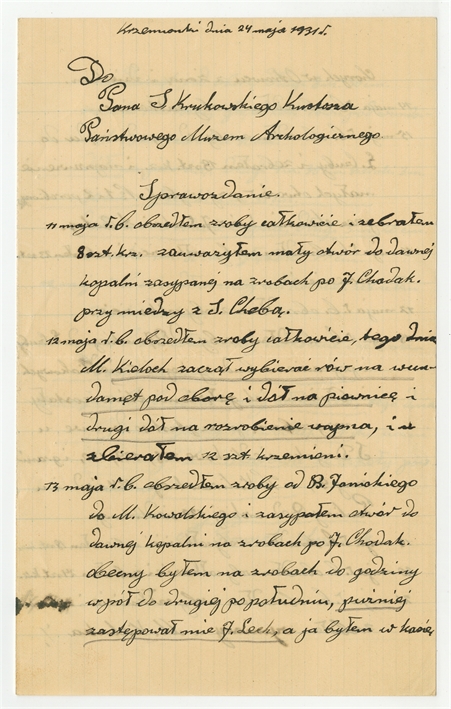 Krzemionki dnia 24 maja 1931 r.
Do
Pana S. Krukowskiego Kustosza
Państwowego Muzem Archologicznego
Sprawozdanie.
11 maja r.b. obszedłem zroby całkowicie i zebrałem
8 szt. krz. zauważyłem mały otwór do dawnej
kopalni zasypanej na zrobach po J. Chodak.
przy miedzy z S. Chebą.
12 maja r.b. obszedłem zroby całkowicie, tego dnia
M. Kieloch zaczął wybierać rów na wun-
damęt pod oborę i dół na piewnicę i
drugi dół na rozrobienie wapna, i u
zbierałem 12 szt. krzemieni.
13 maja r.b. obszedłem zroby od B. Janiskiego
do M. Kowalskiego i zasypałem otwór do
dawnej kopalni na zrobach po J. Chodak.
obecny byłem na zrobach do godziny
wpół do drugiej popołudniu, puzniej
zastępował mie J. Lech, a ja byłem w kasie